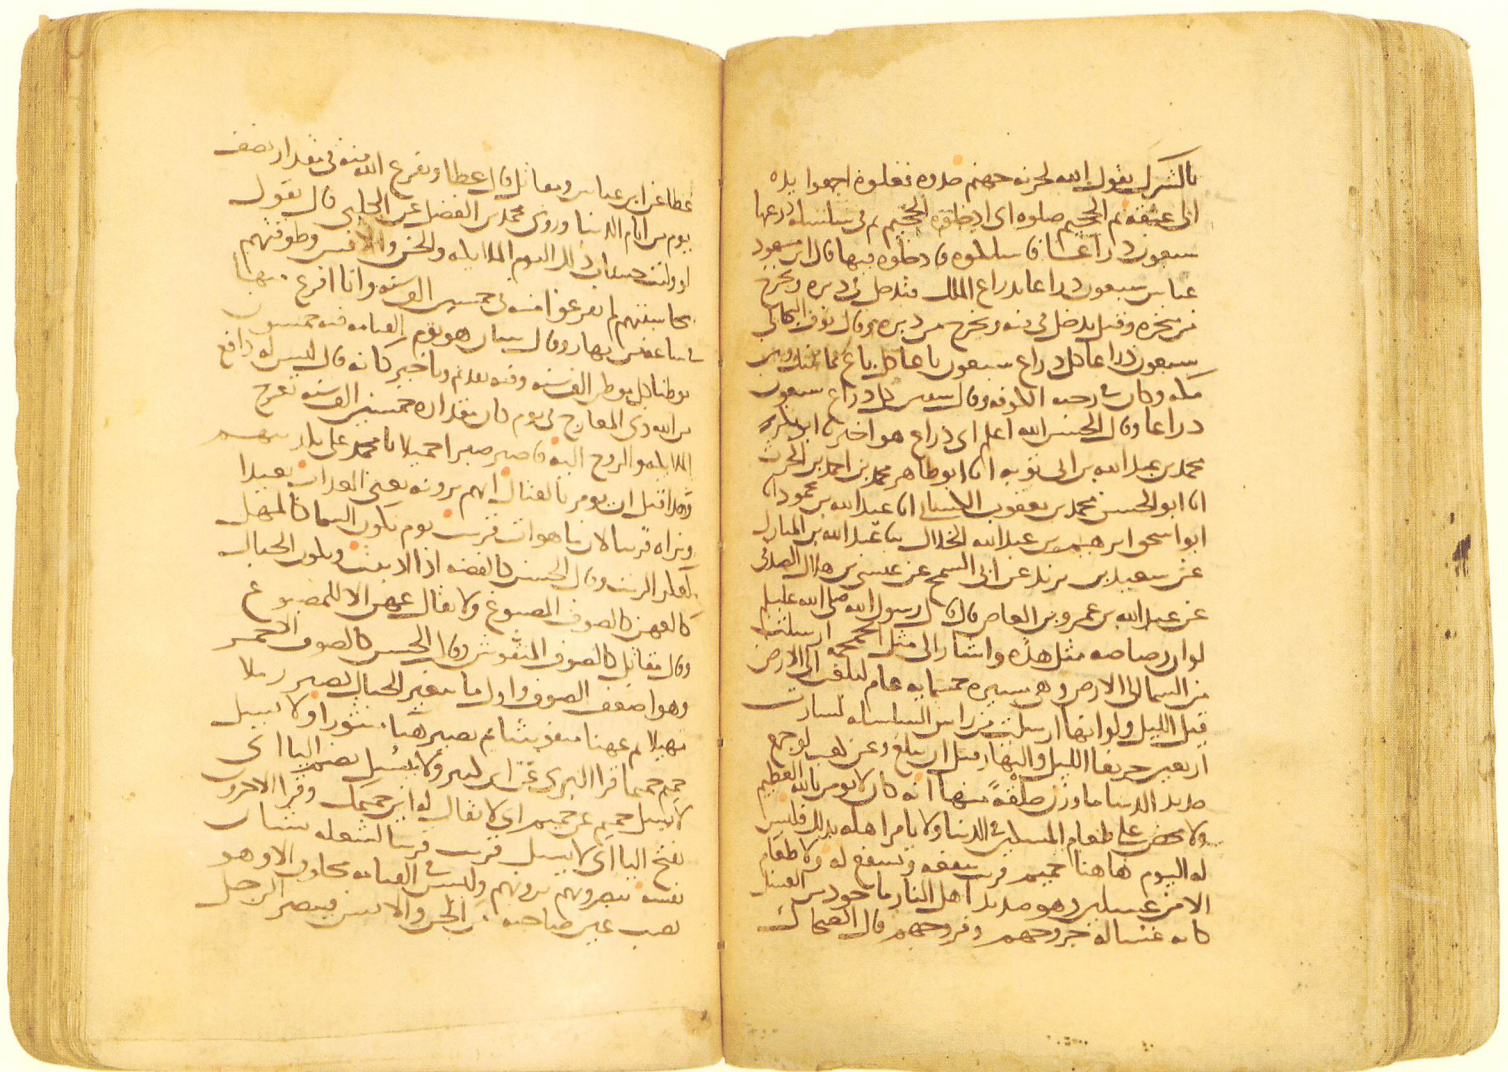 بالشمال يقول الله لخزنة جهنم خذوه فغلوه اجمعوا يده
الى عنقه ثم الجحيم صلوه اى ادخلوه الجحيم ثم فى سلسلة ذرعها
سبعون ذراعا فاسلكوه فادخلوه فيها قال ابن
عباس سبعون ذراعا بذراع الملك فتدخل فى دبره وتخرج
من منخره وقيل يدخل فى فيه ويخرج من دبره وقال نوف البكالى
سبعون ذراعا كل ذراع سبعون باعا كل باع مما بينك وبين
مكة وكان فى رحبة الكوفة وقال سفين كل ذراع سبعون
ذراعا وقال الحسن الله اعلم اى ذراع هو اخبرنا ابو بكر
محمد بن عبد الله بن ابى توبه انا ابو طاهر محمد بن احمد بن الحرث
انا ابو الحسن محمد بن يعقوب الكسائى انا عبد الله بن محمود انا
ابو اسحق ابرهيم بن عبد الله الخلال نا عبد الله بن المبارك
عن سعيد بن يزيد عن ابى السمح عن عيسى بن هلال الصدفى
عن عبد الله بن عمرو بن العاص قال قال رسول الله صلى الله عليه
لو ان رصاصة مثل هذه واشار الى مثل الجمجمه ارسلت
من السما الى الارض وهى مسيرة خمسمايه عام لبلغت الى الارض
قبل الليل ولو انها ارسلت من راس السلسلة لسارت
اربعين خريفا الليل والنهار قبل ان تبلغ وعن كعب لو جمع
حديد الدنيا ما وزن حلقة منها انه كان لا يومن بالله العظيم
ولا يحض على طعام المسكين فى الدنيا ولا يامر اهله بذلك فليس
له اليوم هاهنا حميم قريب ينفعه ويشفع له ولا طعام
الا من غسلين وهو صديد اهل النار ماخوذ من الغسل
كانه غسالة جروحهم وقروحهم قال الضحاك
عطا عن ابن عباس ومقاتل قال عطا ويفرغ الله منه فى مقدار نصف
يوم من ايام الدنيا وروى محمد بن الفضل عن الكلبى قال يقول
لو وليت حساب ذلك اليوم الملايكه والجن والانس وطوقتهم
محاسبتهم لم يفرغوا منه فى خمسين الف سنه وانا افرغ منها
فى ساعة من نهار وقال يمان هو يوم القيامه فيه خمسون
موطنا كل موطن الف سنه وفيه تقديم وتاخير كانه قال ليس له دافع
من الله ذى المعارج فى يوم كان مقداره خمسين الف سنه تعرج
الملايكه والروح اليه فاصبر صبرا جميلا يا محمد على تكذيبهم
وهذا قبل ان يومر بالقتال انهم يرونه يعنى العذاب بعيدا
ونراه قريبا لان ما هو ات قريب يوم تكون السما كالمهل
كعكر الزيت وقال الحسن كالفضه اذا اذيبت وتكون الجبال
كالعهن كالصوف المصبوغ ولا يقال عهن الا للمصبوغ
وقال مقاتل كالصوف المنفوش وقال الحسن كالصوف الاحمر
وهو اضعف الصوف واول ما تتغير الجبال تصير رملا
مهيلا ثم عهنا منفوشا ثم تصير هبا منثورا ولا يسيل
حميم حميما قرا البزى عن ابن كثير ولا يسيل بضم اليا اى
لا يسيل حميم عن حميم اى لا يقال له اين حميمك وقرا الاخرون
بفتح اليا اى لا يسيل قريب قريبا لشغله بشان
نفسه يبصرونهم يرونهم وليس فى القيامه مخلوق الا وهو
نصب عين صاحبه من الجن والانس فيبصر الرجل